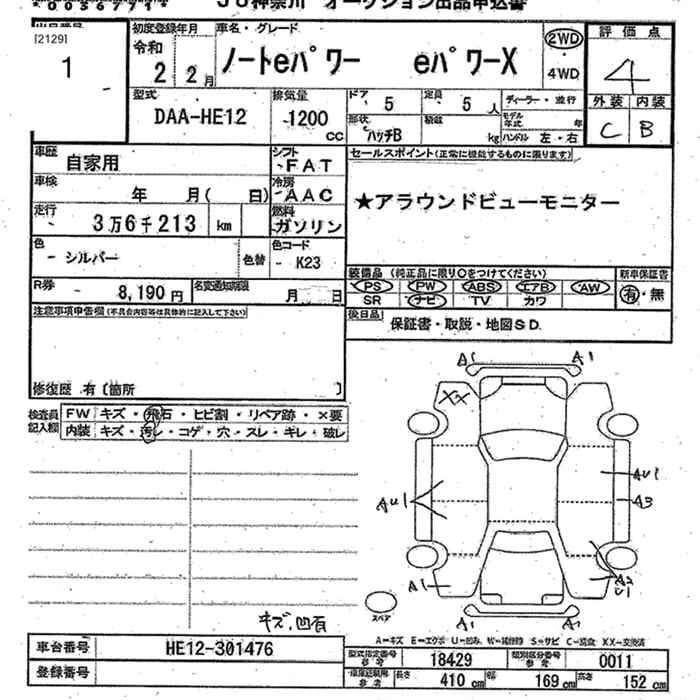 JU神奈川 オークション出品申込書
[2129]
1
初度登録年月
令和
2年 2月
車名・グレード
ノートeパワー eパワーX
2WD
4WD
評価点
4
外装 内装
C B
型式
DAA-HE12
排気量
1200
CC
ドア
5
定員
5人
形状
ハッチB
積載
kg
ディーラー・並行
モデル年式 年
ハンドル 左・右
車歴
自家用
シフト
FAT
車検
年 月( 日)
冷房
AAC
走行
3万6千213 km
燃料
ガソリン
色
シルバー
色替
色コード
K23
R券
8,190円
名変通知期限
月 日
セールスポイント(正常に機能するものに限ります)
★アラウンドビューモニター
装備品 (純正品に限り○をつけてください)
PS PW ABS エアB AW
SR ナビ TV カワ
新車保証書
有・無
後日品
保証書・取説・地図SD.
注意事項申告欄(不具合内容等は具体的に記入して下さい)
修復歴 有〔箇所 〕
検査員記入欄
FW キズ・飛石・ヒビ割・リペア跡・×要
内装 キズ・汚レ・コゲ・穴・スレ・キレ・破レ
A1 A1
XX
AU1
A3
AU1
A1
A2
U1
A1 A1
スペア
キズ、凹有
A=キズ E=エクボ U=凹み W=補修跡 S=サビ C=腐食 XX=交換済
車台番号
HE12-301476
登録番号
型式指定番号
参考
18429
類別区分番号
参考
0011
長さ
410 cm
幅
169 cm
高さ
152 cm